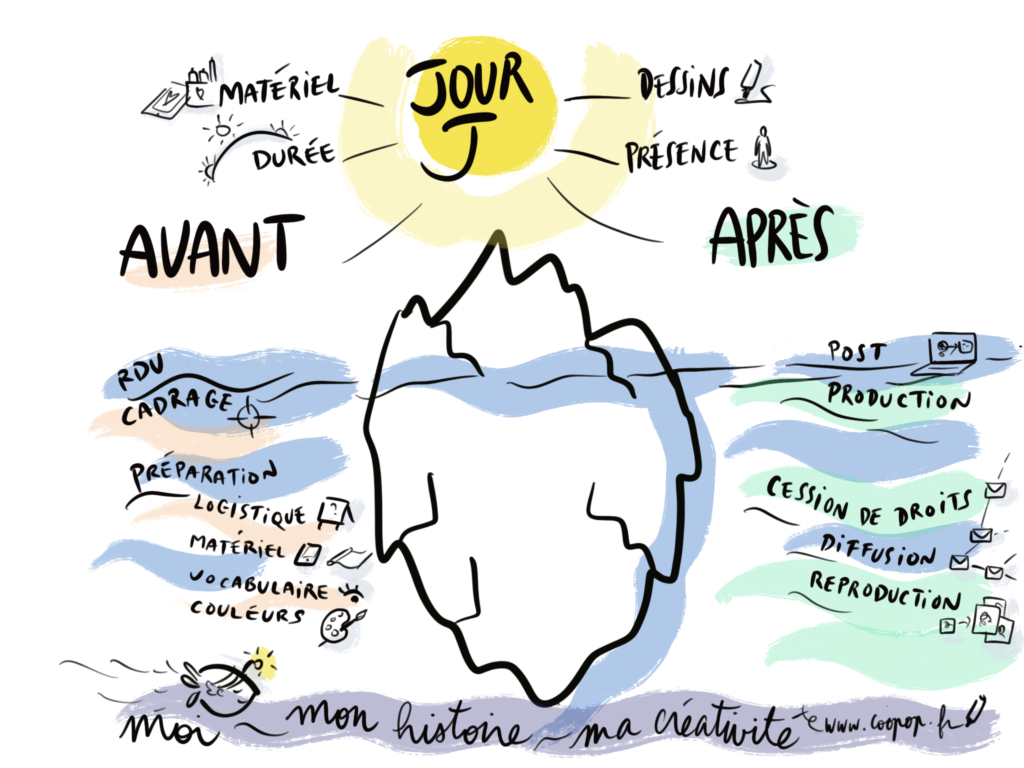 JOUR
J
MATÉRIEL
DURÉE
DESSINS
PRÉSENCE
AVANT
APRÈS
RDV
CADRAGE
PRÉPARATION
LOGISTIQUE
MATÉRIEL
VOCABULAIRE
COULEURS
POST
PRODUCTION
CESSION DE DROITS
DIFFUSION
REPRODUCTION
moi ~ mon histoire ~ ma créativité
www.coopop.fr